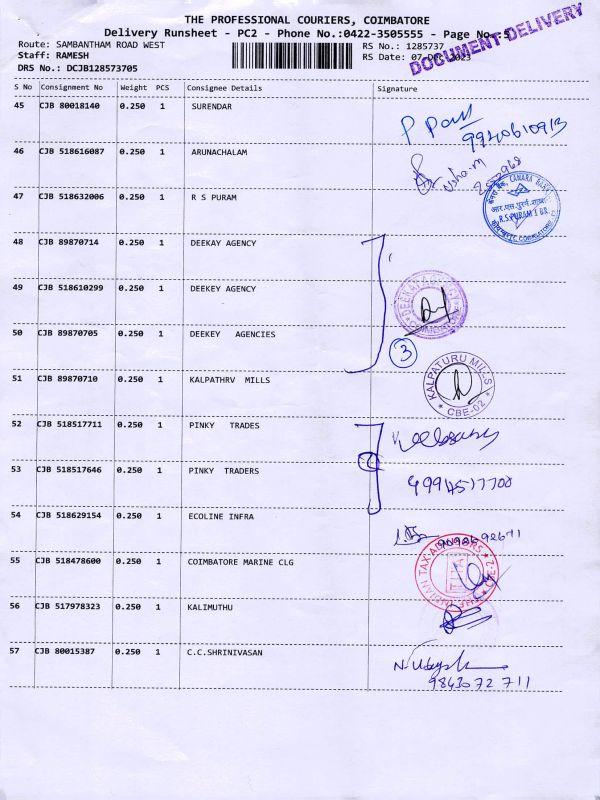 THE PROFESSIONAL COURIERS, COIMBATORE
Delivery Runsheet - PC2 - Phone No.:0422-3505555 - Page No.:5
DOCUMENT DELIVERY
Route: SAMBANTHAM ROAD WEST RS No.: 1285737
Staff: RAMESH RS Date: 07-Dec-2023
DRS No.: DCJB128573705
S No Consignment No Weight PCS Consignee Details Signature
45 CJB 80018140 0.250 1 SURENDAR
9940610913
46 CJB 518616087 0.250 1 ARUNACHALAM
Usha.M
47 CJB 518632006 0.250 1 R S PURAM
CANARA BANK
R.S.PURAM I BR.
48 CJB 89870714 0.250 1 DEEKAY AGENCY
49 CJB 518610299 0.250 1 DEEKEY AGENCY
50 CJB 89870705 0.250 1 DEEKEY AGENCIES
3
51 CJB 89870710 0.250 1 KALPATHRV MILLS
KALPATURU MILLS
* CBE-02 *
52 CJB 518517711 0.250 1 PINKY TRADES
53 CJB 518517646 0.250 1 PINKY TRADERS
9994517708
54 CJB 518629154 0.250 1 ECOLINE INFRA
55 CJB 518478600 0.250 1 COIMBATORE MARINE CLG
56 CJB 517978323 0.250 1 KALIMUTHU
57 CJB 80015387 0.250 1 C.C.SHRINIVASAN
9843072711